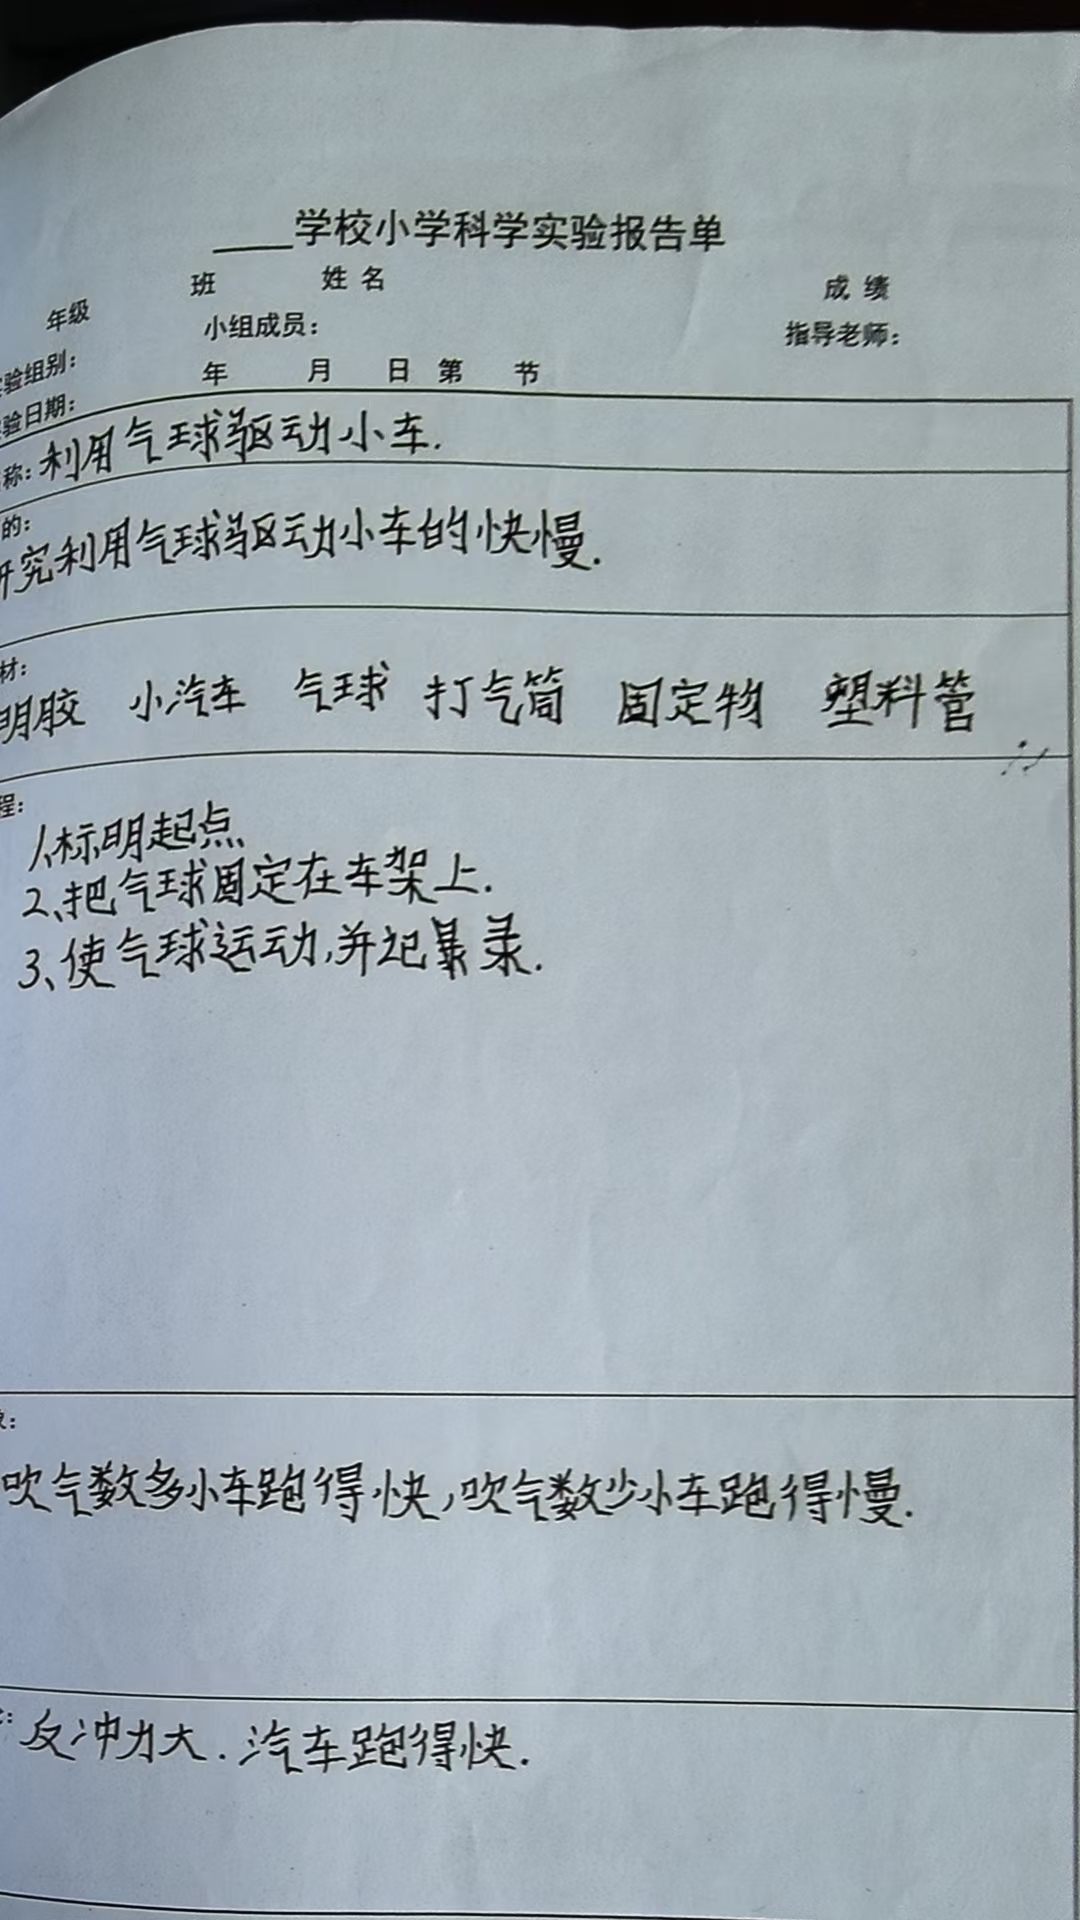 ____学校小学科学实验报告单
年级 班 姓名 成绩
验组别: 小组成员: 指导老师:
验日期: 年 月 日 第 节
称: 利用气球驱动小车.
的:
研究利用气球驱动小车的快慢.
材:
明胶 小汽车 气球 打气筒 固定物 塑料管
程:
1、标明起点、
2、把气球固定在车架上.
3、使气球运动,并记录.
象:
吹气数多小车跑得快,吹气数少小车跑得慢.
反冲力大.汽车跑得快.